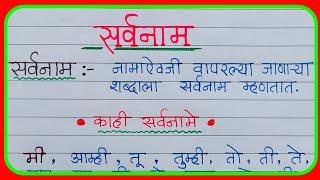 सर्वनाम
सर्वनाम :- नामाऐवजी वापरल्या जाणाऱ्या
शब्दाला सर्वनाम म्हणतात.
• काही सर्वनामे •
मी, आम्ही, तू, तुम्ही, तो, ती, ते,